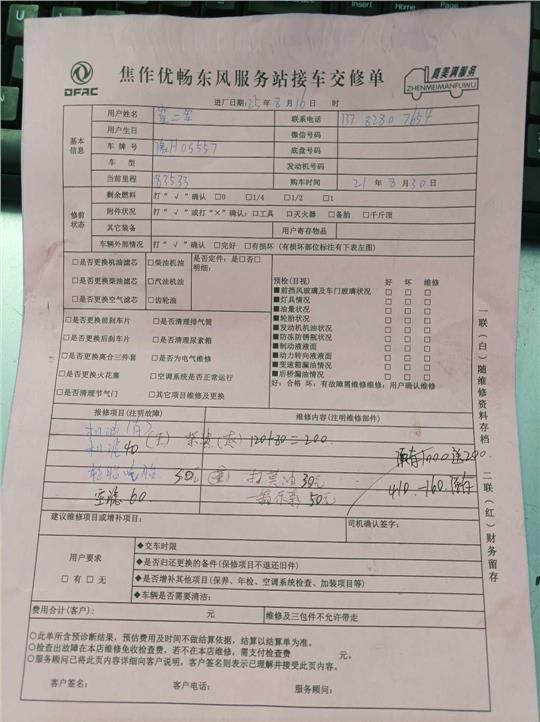 DFAC
焦作优畅东风服务站接车交修单
真美满服务
ZHENMEIMANFUWU
进厂日期: 25 年 8 月 16 日 时
基本信息
用户姓名 联系电话 137 8280 7654
用户生日 微信号码
车 牌 号 豫H05557 底盘号码
车 型 发动机号码
当前里程 83533 购车时间 21 年 8 月 30 日
修前状态
剩余燃料 打“√”确认 □0 □1/4 □1/2 □1
附件状况 打“√”或打“×”确认: □工具 □灭火器 □备胎 □千斤顶
其它装备 用户寄存物品
车辆外部情况 打“√”确认 □完好 □有损坏 (有损坏部位标注有下表左图)
□是否更换机油滤芯 □柴油机油 是否定件: 是□否□
明细:
□是否更换柴油滤芯 □汽油机油
□是否更换空气滤芯 □齿轮油
预检(目视) 好 坏 维修
■前挡风玻璃及车门玻璃状况 □ □ □
■灯具情况 □ □ □
■油量状况 □ □ □
■轮胎状况 □ □ □
■发动机机油状况 □ □ □
■防冻防锈瓶状况 □ □ □
■制动液液面 □ □ □
■动力转向液液面 □ □ □
■变速箱漏油情况 □ □ □
■后桥漏油情况 □ □ □
好: 合格 坏: 有故障需维修维修: 用户确认维修
□是否更换前刹车片 □是否清理排气筒
□是否更换后刹车片 □是否清理尿素箱
□是否更换离合三件套 □是否为电气维修
□是否更换火花塞 □空调系统是否正常运行
□是否清理节气门 □其它项目维修及更换
报修项目(注明故障) 维修内容(注明维修部件)
机油
机滤 40 120+80=200
50 打黄油 30元
空滤 60 50元
1000送200
410-160
建议维修项目或增补项目: 司机确认签字:
用户要求
□ 有 □ 无
◆交车时限
◆是否归还更换的备件(保修项目不退还旧件)
◆是否增补其他项目(保养、年检、空调系统检查、加装项目等)
◆车辆是否需要清洁:
费用合计(客户): 元 维修及三包件不允许带走
○此单所含预诊断结果,预估费用及时间不做结算依据,结算以结算单为准。
○检查出故障在本店维修免收检查费,若不在本店维修,需支付检查费 元。
○服务顾问已将此页内容详细向客户说明,客户签名则表示已理解并接受此页内容。
客户签名: 客户电话: 服务顾问:
一联(白)随维修资料存档 二联(红)财务留存